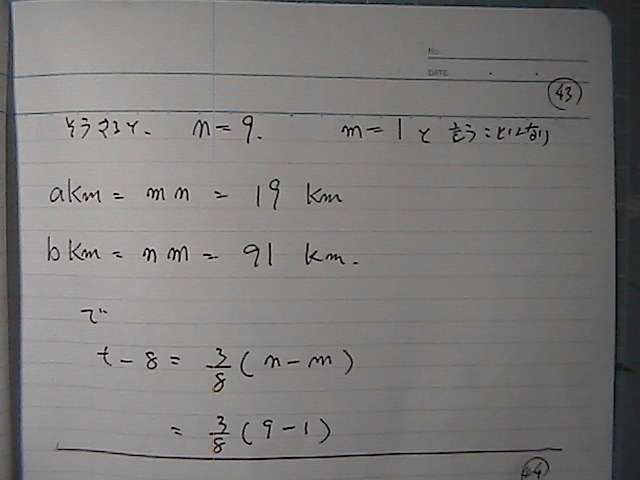 No.
DATE
43
そうすると、 n=9. m=1 と いうことになり
akm = mn = 19 km
bkm = nm = 91 km.
で
t-8 = 3/8 (n-m)
= 3/8 (9-1)
44